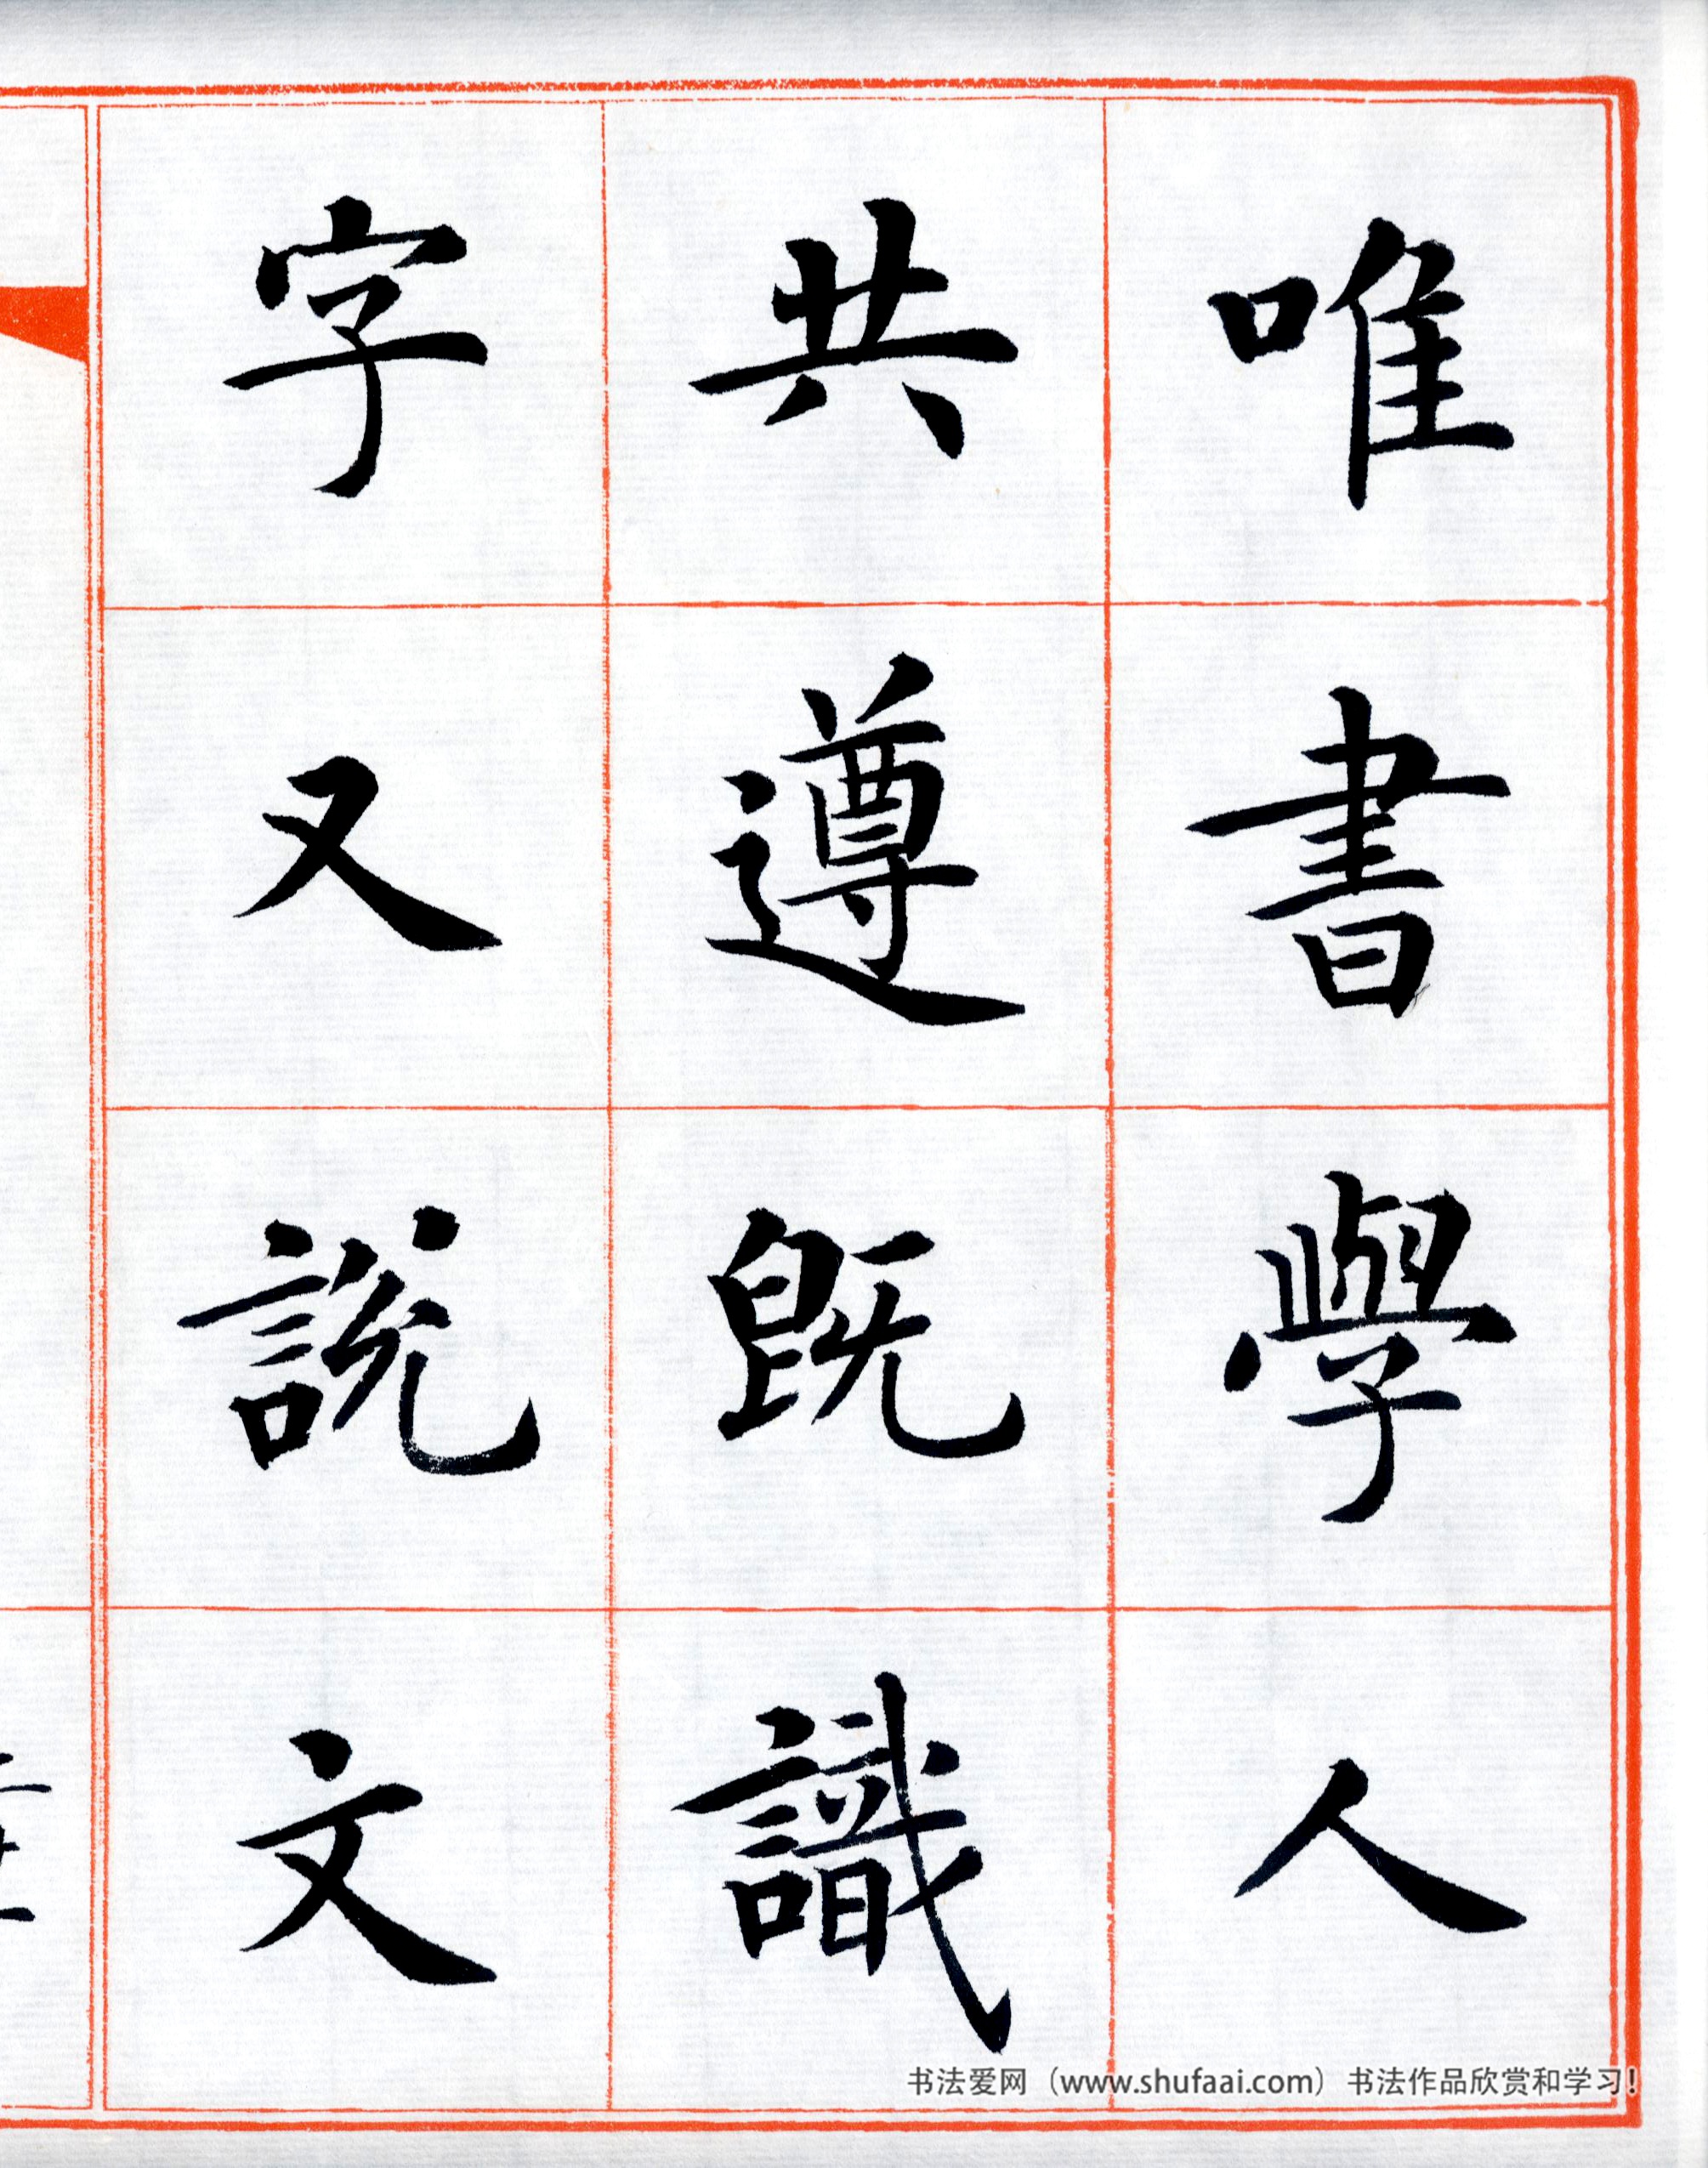 唯書學人
共遵既識
字又說文
书法爱网（www.shufaai.com）书法作品欣赏和学习！